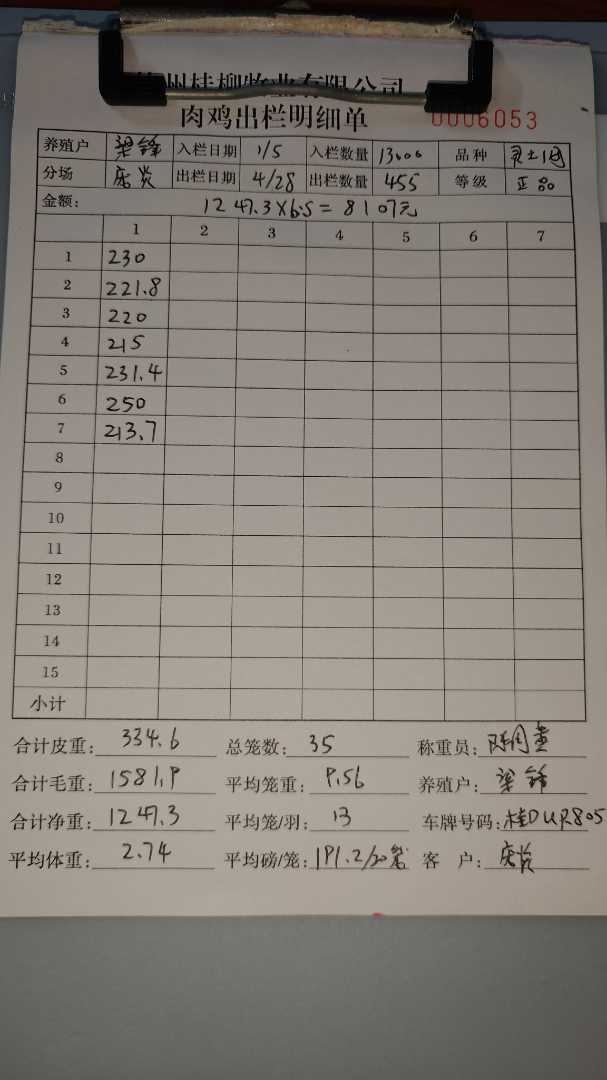 州桂柳牧业有限公司
肉鸡出栏明细单 0006053
养殖户 梁锋 入栏日期 1/5 入栏数量 13000 品种 灵土1号
分场 出栏日期 4/28 出栏数量 455 等级 正品
金额: 1247.3X6.5=8107元
1 2 3 4 5 6 7
1 230
2 221.8
3 220
4 215
5 231.4
6 250
7 213.7
8
9
10
11
12
13
14
15
小计
合计皮重: 334.6 总笼数: 35 称重员:
合计毛重: 1581.9 平均笼重: 9.56 养殖户: 梁锋
合计净重: 1247.3 平均笼/羽: 13 车牌号码: 桂DUR805
平均体重: 2.74 平均磅/笼: 191.2/20笼 客 户: